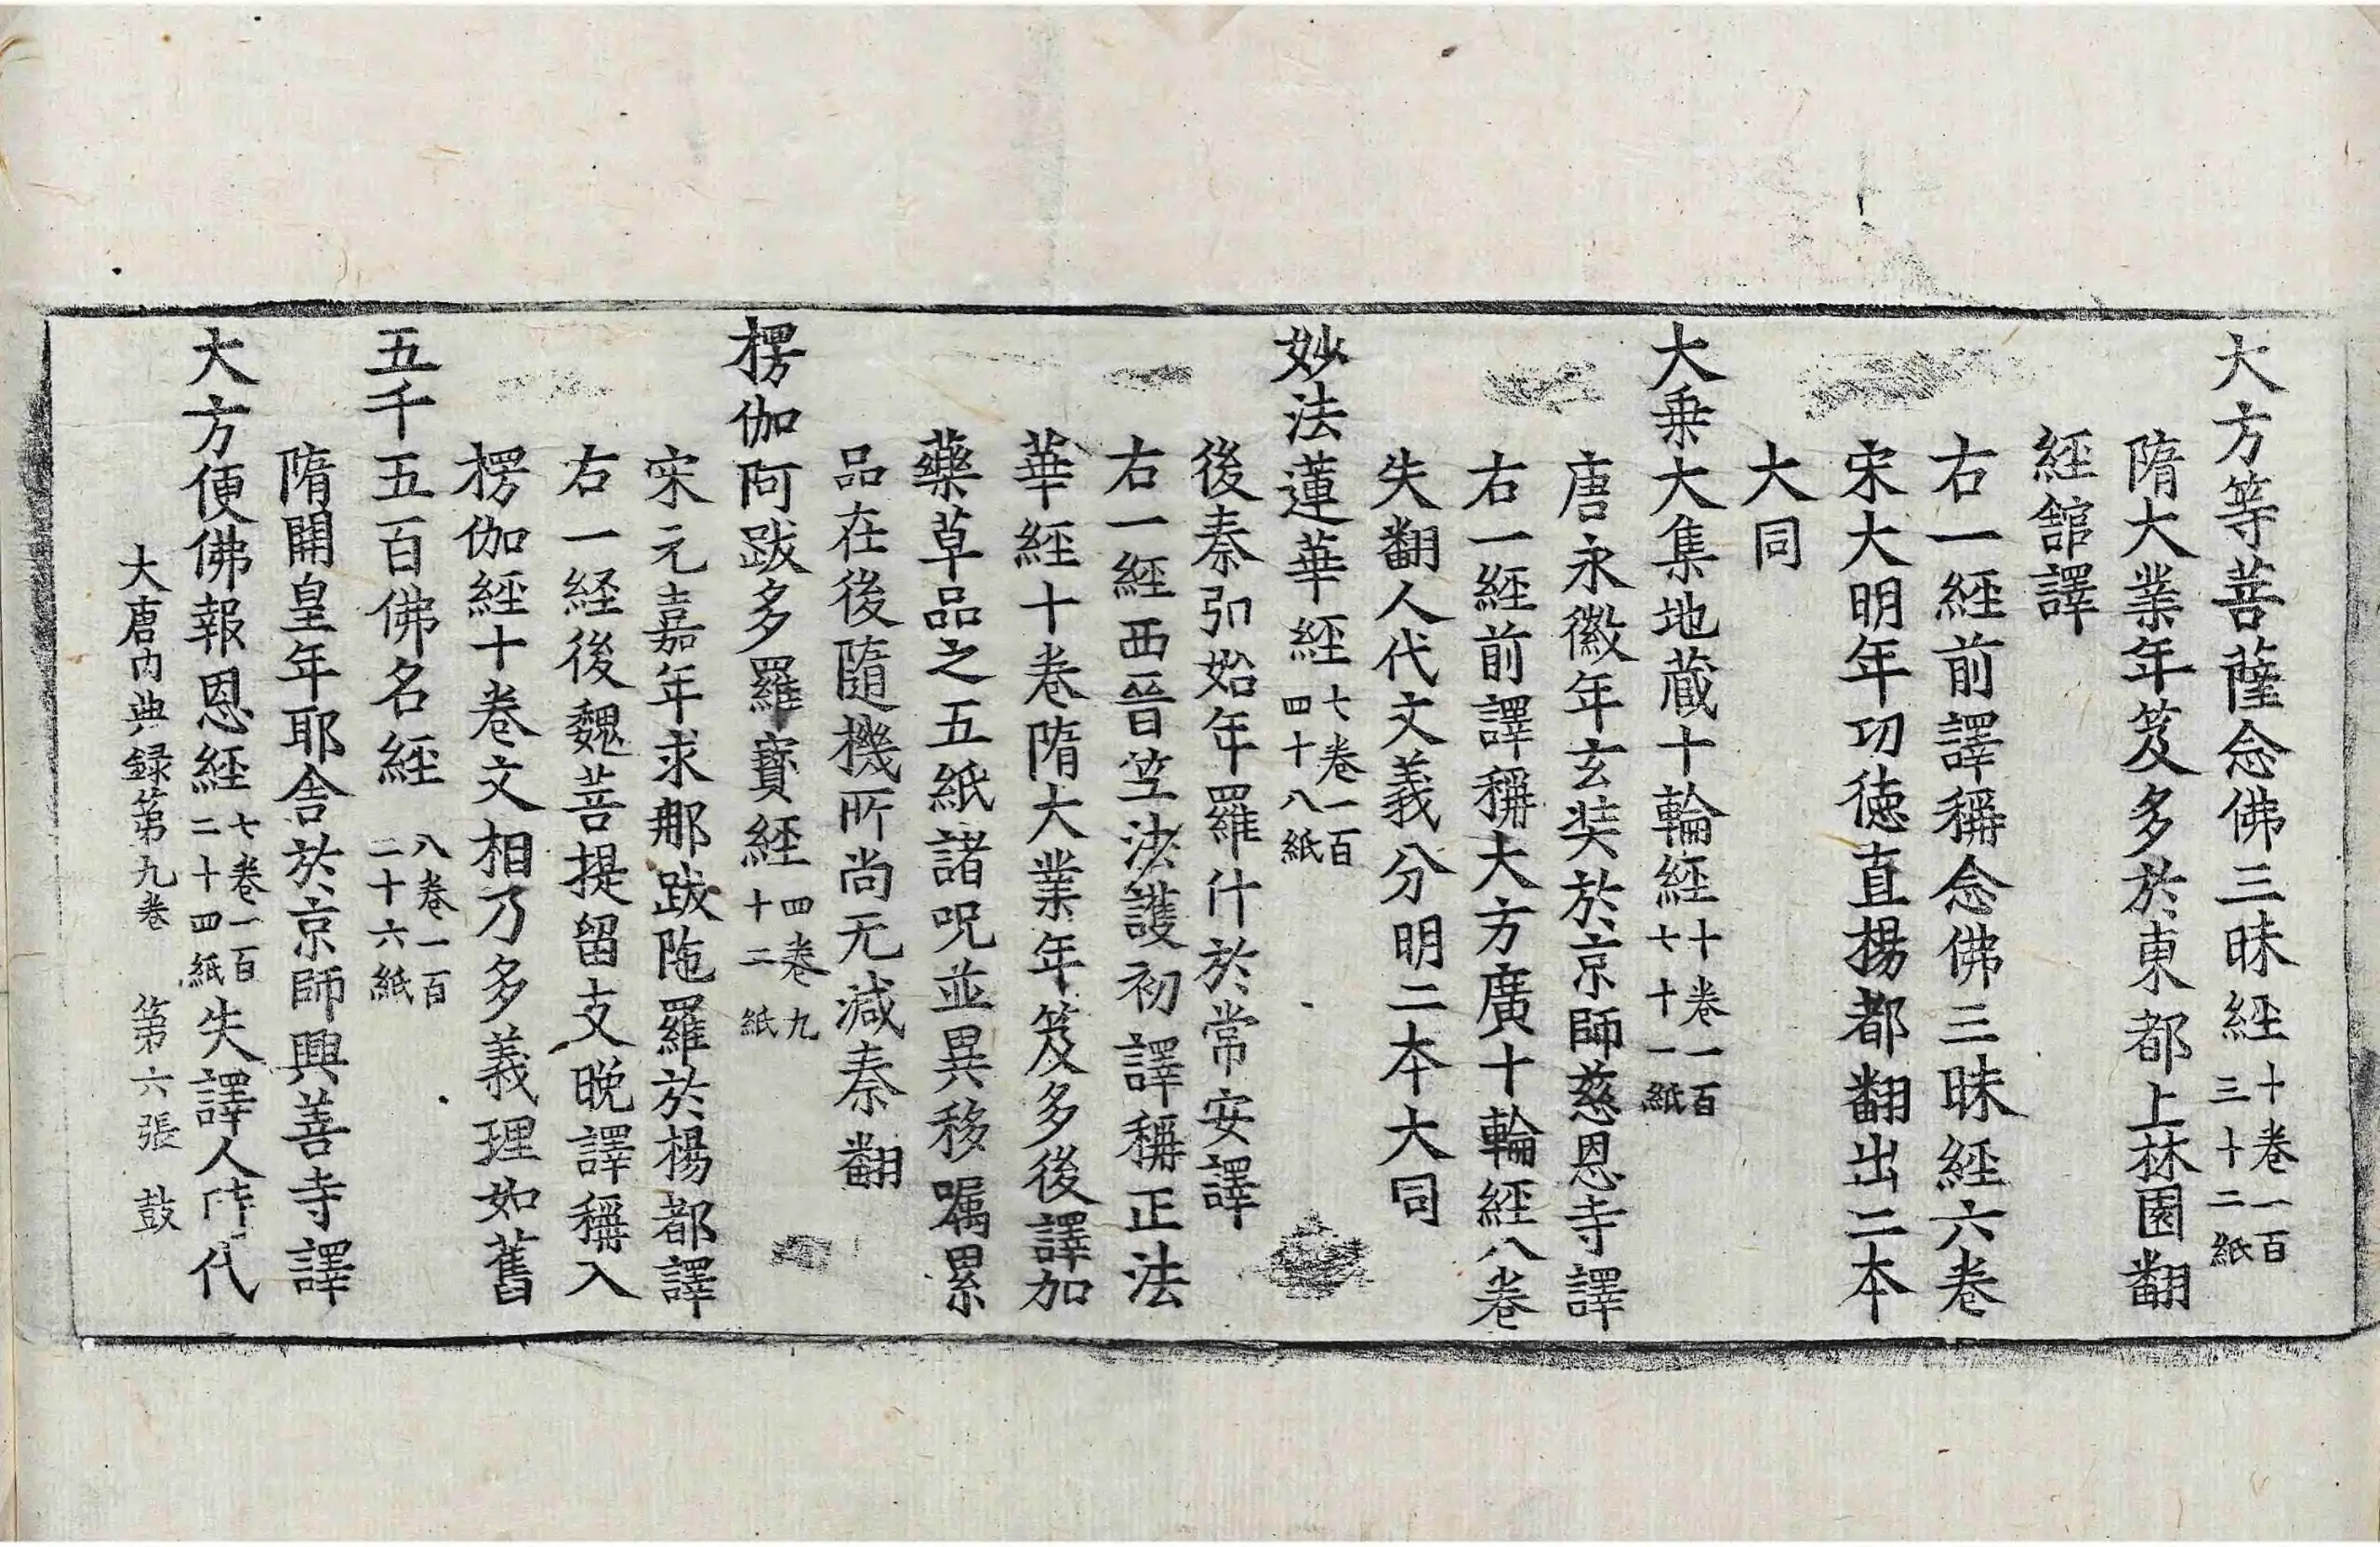 大方等菩薩念佛三昧経十卷一百三十二紙
隋大業年笈多於東都上林園翻
経舘譯
右一経前譯稱念佛三昧経六卷
宋大明年功徳直揚都翻出二本
大同
大乗大集地蔵十輪経十卷一百七十一紙
唐永徽年玄奘於京師慈恩寺譯
右一経前譯稱大方廣十輪経八卷
失翻人代文義分明二本大同
妙法蓮華経七卷一百四十八紙
後秦弘始年羅什於常安譯
右一経西晉笁法護初譯稱正法
華経十卷隋大業年笈多後譯加
藥草品之五紙諸呪並異移嘱累
品在後隨機所尚无減秦翻
楞伽阿跋多羅寶経四卷九十二紙
宋元嘉年求那跋陁羅於楊都譯
右一経後魏菩提留支晩譯稱入
楞伽経十卷文相乃多義理如舊
五千五百佛名経八卷一百二十六紙
隋開皇年耶舎於京師興善寺譯
大方便佛報恩経七卷一百二十四紙失譯人時代
大唐内典録第九卷 第六張 鼓